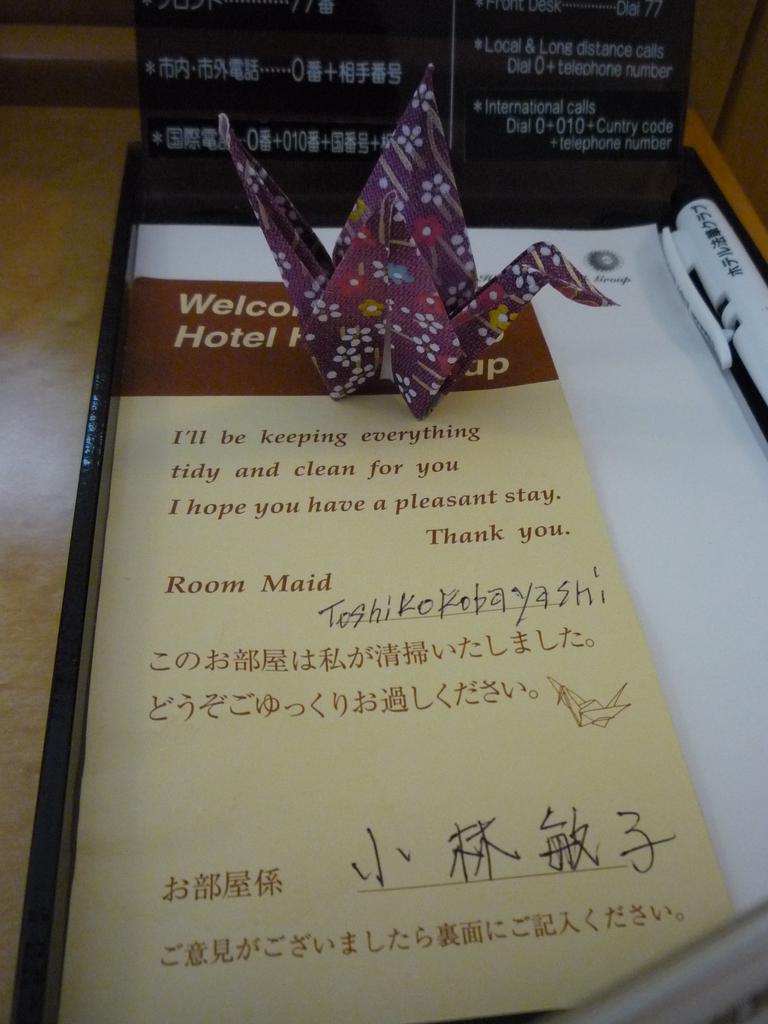 フロント…………77番
*市内・市外電話……0番+相手番号
*国際電話…0番+010番+国番号+
*Front Desk…………Dial 77
*Local & Long distance calls
Dial 0+telephone number
*International calls
Dial 0+010+Cuntry code
+telephone number
Group
ホテル法華クラブ
Hotel
I'll be keeping everything
tidy and clean for you
I hope you have a pleasant stay.
Thank you.
Room Maid
Toshiko Kobayashi
このお部屋は私が清掃いたしました。
どうぞごゆっくりお過しください。
お部屋係 小林敏子
ご意見がございましたら裏面にご記入ください。